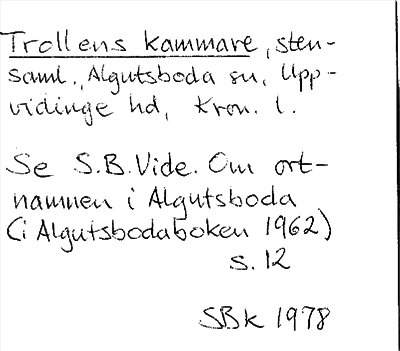 Trollens kammare, sten-
saml., Algutsboda sn, Upp-
vidinge hd, Kron. l.
Se S.B.Vide. Om ort-
namnen i Algutsboda
(i Algutsbodaboken 1962)
s. 12
SBk 1978